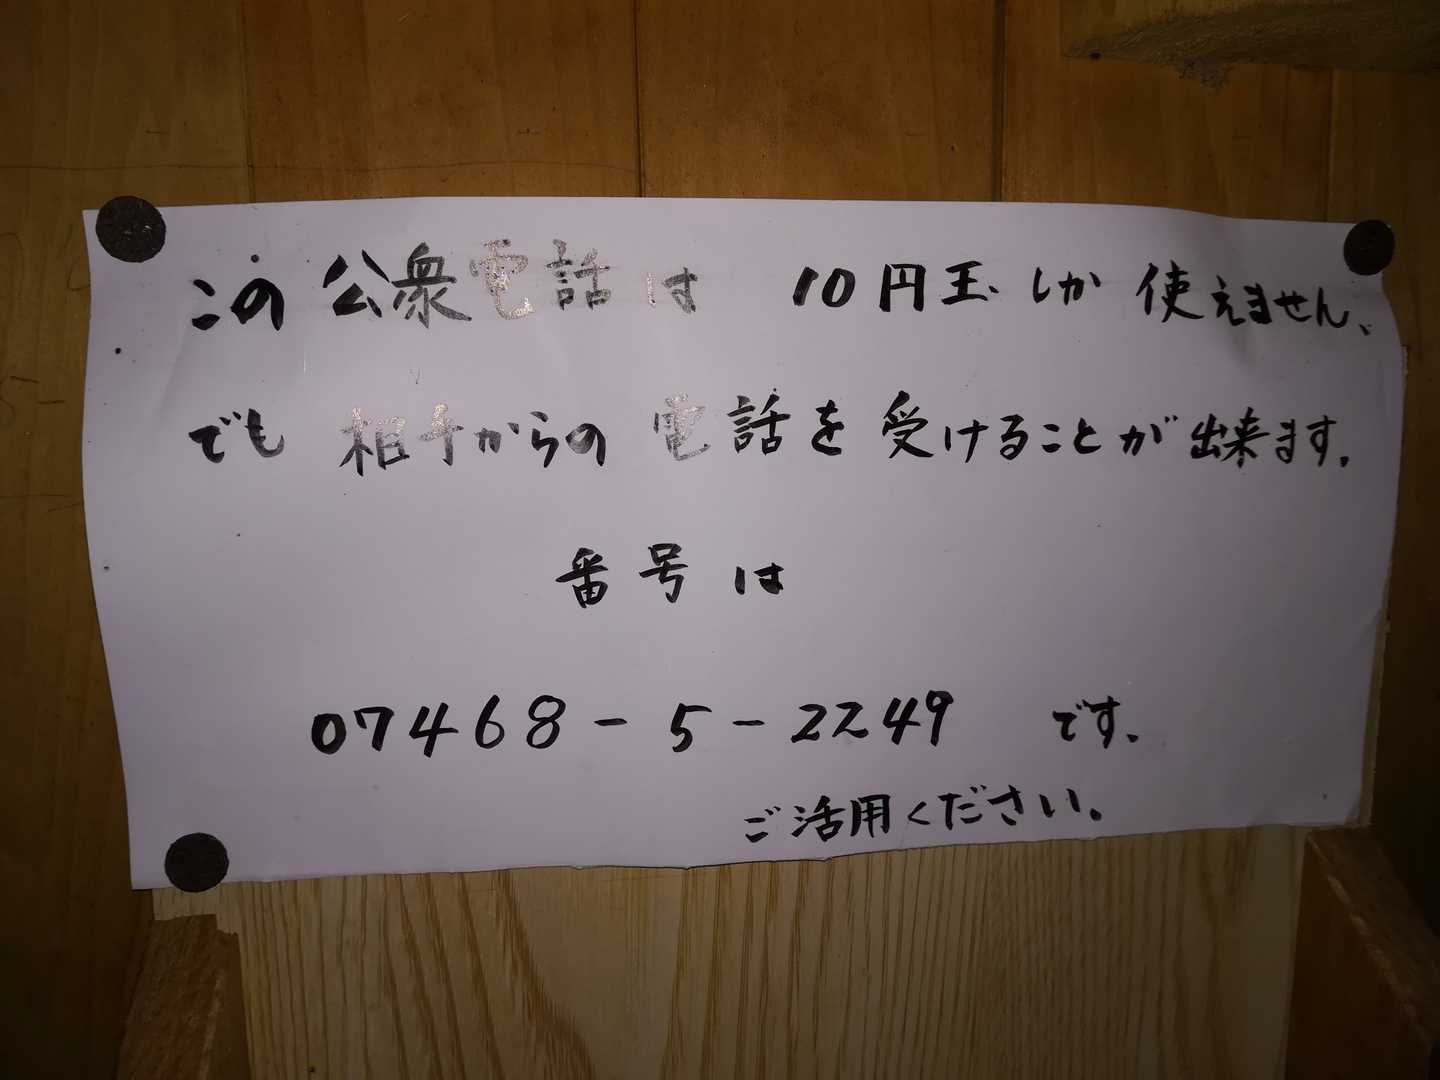 この公衆電話は 10円玉しか使えません、
でも相手からの電話を受けることが出来ます。
番号は
07468-5-2249 です。
ご活用ください。